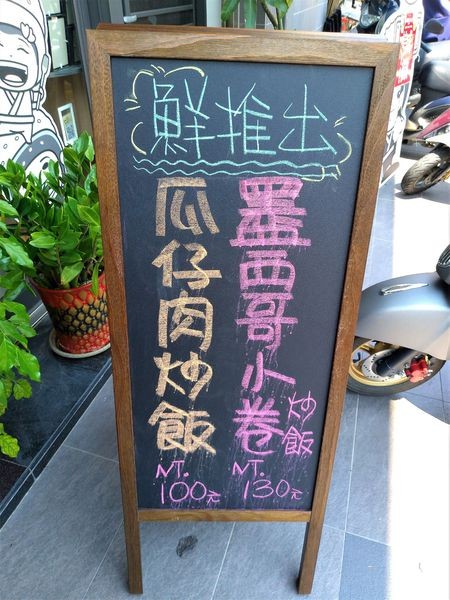 鮮推出
墨西哥小卷
炒飯
NT.
130元
瓜仔肉炒飯
NT.
100元